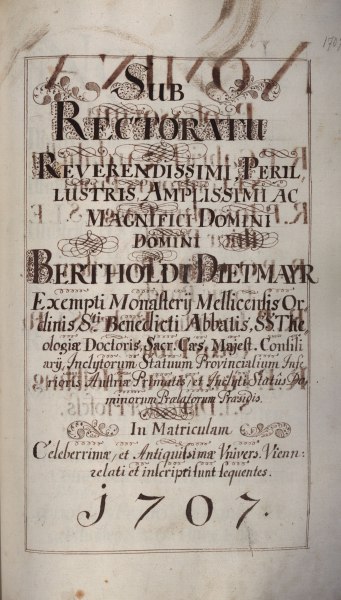 1707
SUB
RECTORATU
REVERENDISSIMI, PERIL,
LUSTRIS AMPLISSIMI AC
MAGNIFICI DOMINI
DOMINI
BERTHOLDI DIETMAYR
Exempti Monasterij Mellicensis Or,
dinis S.ti Benedicti Abbatis, SS The,
ologiæ Doctoris, Sacr. Cæs. Majest. Consili
arij, Inclytorum Statuum Provincialium Infe
rioris Austriæ Primatis, et Inclyti Status Do,
minorum Prælatorum Præsidis.
In Matriculam
Celeberrimæ, et Antiquissimæ Vnivers. Vienn:
relati et inscripti sunt sequentes.
1707.